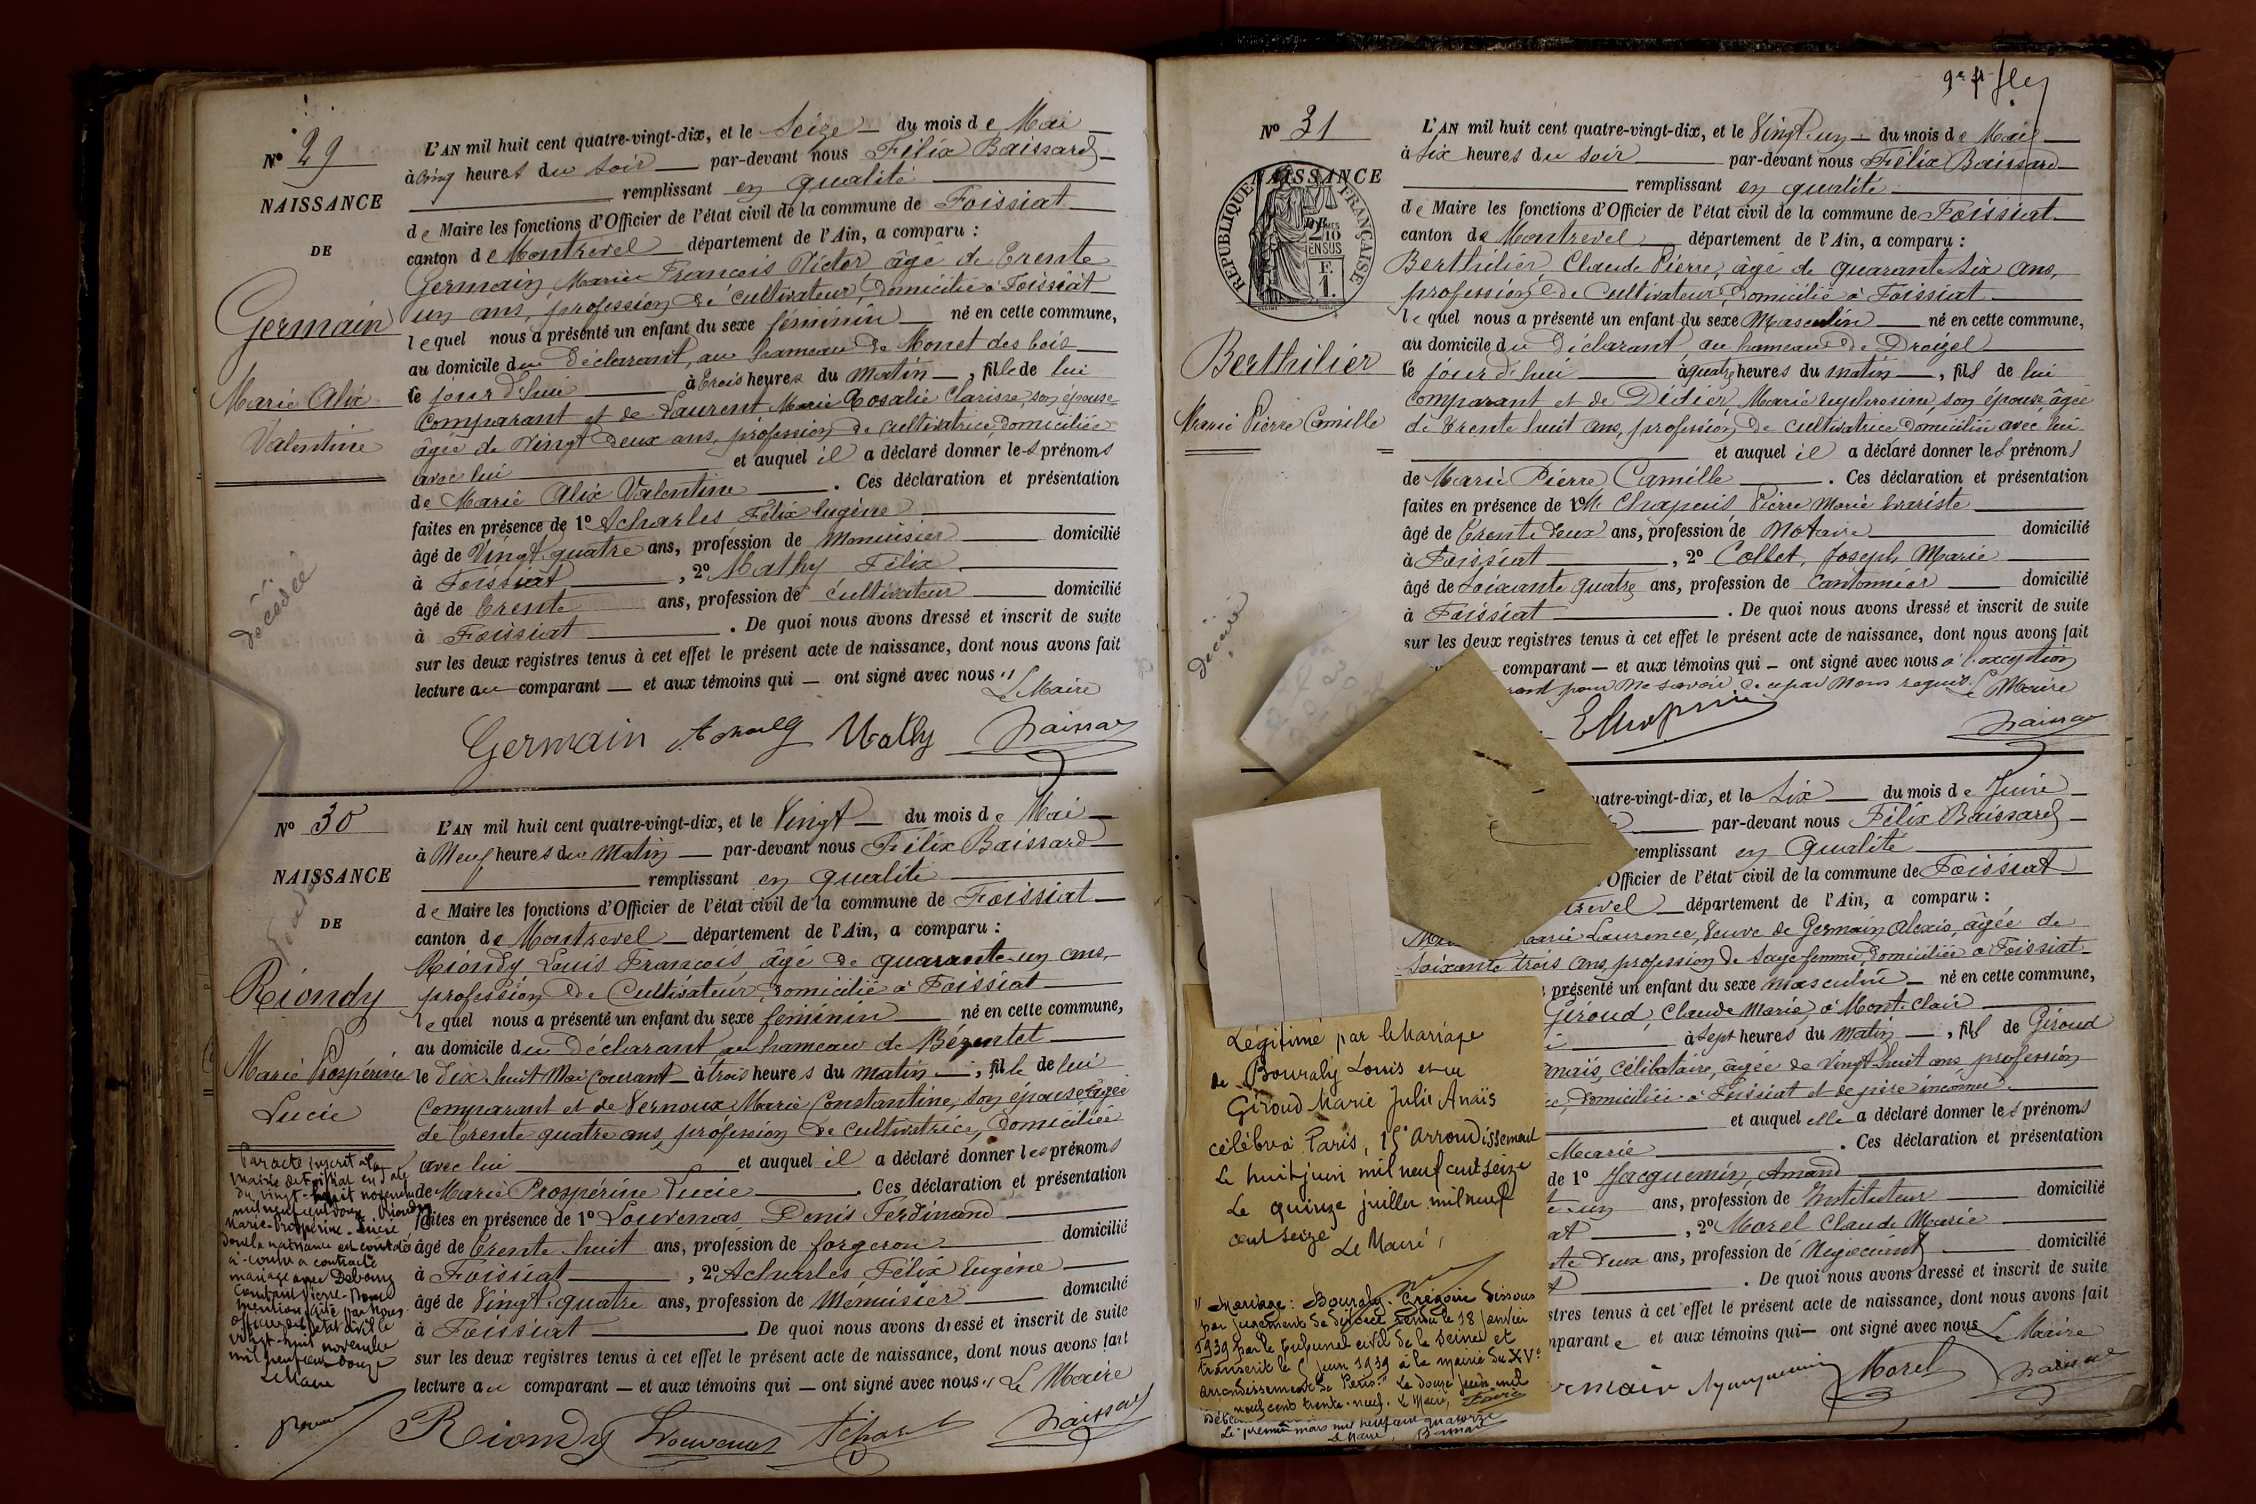 Nº 29
NAISSANCE
DE
Germain
Marie Alix
Valentine
décédée
L'AN mil huit cent quatre-vingt-dix, et le Seize du mois de Mai
à cinq heures du soir par-devant nous Félix Baissard
remplissant en qualité
de Maire les fonctions d'Officier de l'état civil de la commune de Foissiat
canton de Montrevel département de l'Ain, a comparu :
Germain, Marie François Victor, âgé de trente
un ans, profession de cultivateur, domicilié à Foissiat
lequel nous a présenté un enfant du sexe féminin né en cette commune,
au domicile du déclarant, au hameau de Monet des bois
le jour d'hui à trois heures du matin, fille de lui
comparant et de Laurent, Marie Rosalie Clarisse, son épouse
âgée de vingt deux ans, profession de cultivatrice domiciliée
avec lui et auquel il a déclaré donner les prénoms
de Marie Alix Valentine. Ces déclaration et présentation
faites en présence de 1º Acharles, Félix Eugène
âgé de vingt quatre ans, profession de Menuisier domicilié
à Foissiat, 2º Mathy Félix
âgé de trente ans, profession de cultivateur domicilié
à Foissiat. De quoi nous avons dressé et inscrit de suite
sur les deux registres tenus à cet effet le présent acte de naissance, dont nous avons fait
lecture au comparant — et aux témoins qui — ont signé avec nous
Le Maire
Germain Mathy Baissard
Nº 30
NAISSANCE
DE
Riondy
Marie Prospérine
Lucie
L'AN mil huit cent quatre-vingt-dix, et le Vingt du mois de Mai
à Neuf heures du Matin par-devant nous Félix Baissard
remplissant en qualité
de Maire les fonctions d'Officier de l'état civil de la commune de Foissiat
canton de Montrevel département de l'Ain, a comparu :
Riondy Louis François, âgé de quarante-un ans,
profession de Cultivateur, domicilié à Foissiat
lequel nous a présenté un enfant du sexe féminin né en cette commune,
au domicile du déclarant, au hameau de Bézentet
le dix huit Mai courant à trois heures du matin, fille de lui
comparant et de Vernoux Marie Constantine, son épouse âgée
de trente quatre ans, profession de cultivatrice, domiciliée
avec lui et auquel il a déclaré donner les prénoms
de Marie Prospérine Lucie. Ces déclaration et présentation
faites en présence de 1º Louvenas Denis Ferdinand
âgé de trente huit ans, profession de forgeron domicilié
à Foissiat, 2º Acharles, Félix Eugène
âgé de Vingt quatre ans, profession de Menuisier domicilié
à Foissiat. De quoi nous avons dressé et inscrit de suite
sur les deux registres tenus à cet effet le présent acte de naissance, dont nous avons fait
lecture au comparant — et aux témoins qui — ont signé avec nous Le Maire
Riondy Louvenas Acharles Baissard
Par acte inscrit à la
mairie de Foissiat en date
du vingt-huit novembre
mil neuf cent douze Riondy
Marie-Prospérine-Lucie
dont la naissance est constatée
ci-contre a contracté
mariage avec Debourg
Constant Pierre. Dont
mention faite par nous
officier de l'état civil le
vingt-huit novembre
mil neuf cent douze
Le Maire
Nº 31
NAISSANCE
REPUBLIQUE FRANÇAISE
Berthilier
Marie Pierre Camille
décédé
L'AN mil huit cent quatre-vingt-dix, et le Vingt-un du mois de Mai
à six heures du soir par-devant nous Félix Baissard
remplissant en qualité
de Maire les fonctions d'Officier de l'état civil de la commune de Foissiat
canton de Montrevel département de l'Ain, a comparu :
Berthilier, Claude Pierre, âgé de quarante six ans,
profession de Cultivateur, domicilié à Foissiat
lequel nous a présenté un enfant du sexe Masculin né en cette commune,
au domicile du déclarant au hameau de
le jour d'hui à quatre heures du matin, fils de lui
comparant et de Didier, Marie Euphrosine, son épouse âgée
de trente huit ans, profession de cultivatrice domiciliée avec lui
et auquel il a déclaré donner les prénoms
de Marie Pierre Camille. Ces déclaration et présentation
faites en présence de 1º M. Chapuis Pierre Marie Evariste
âgé de trente deux ans, profession de Notaire domicilié
à Foissiat, 2º Collet, Joseph Marie
âgé de soixante quatre ans, profession de Cantonnier domicilié
à Foissiat. De quoi nous avons dressé et inscrit de suite
sur les deux registres tenus à cet effet le présent acte de naissance, dont nous avons fait
comparant — et aux témoins qui — ont signé avec nous à l'exception
pour ne savoir de ce par Nous requis. Le Maire
E Chapuis Baissard
quatre-vingt-dix, et le Six du mois de Juin
par-devant nous Félix Baissard
remplissant en qualité
Officier de l'état civil de la commune de Foissiat
département de l'Ain, a comparu :
Marie Laurence, Veuve de Germain Alexis, âgée de
soixante trois ans, profession de sage femme, domiciliée à Foissiat
présenté un enfant du sexe masculin né en cette commune,
Giroud, Claude Marie, à Mont-clair
à sept heures du matin, fils de Giroud
célibataire, âgée de vingt huit ans, profession
domiciliée à Foissiat et de père inconnu
et auquel elle a déclaré donner les prénoms
Marie. Ces déclaration et présentation
de 1º Jacquemin, Amand
ans, profession de Instituteur domicilié
2º Morel Claude Marie
deux ans, profession de Négociant domicilié
. De quoi nous avons dressé et inscrit de suite
tenus à cet effet le présent acte de naissance, dont nous avons fait
comparante et aux témoins qui — ont signé avec nous Le Maire
Jacquemin Morel Baissard
Légitimé par le Mariage
de Bouraly Louis et de
Giroud Marie Julie Anaïs
célébré à Paris, 15e arrondissement
Le huit juin mil neuf cent seize
Le quinze juillet mil neuf
cent seize
Le Maire,
"Mariage : Bouraly - Grégoire dissous
par jugement de divorce rendu le 18 janvier
1939 par le tribunal civil de la Seine et
transcrit le 6 juin 1939 à la mairie du XVe
arrondissement de Paris." Le douze juin mil
neuf cent trente-neuf. Le Maire,
Le premier mars mil neuf cent quatorze
Le Maire,